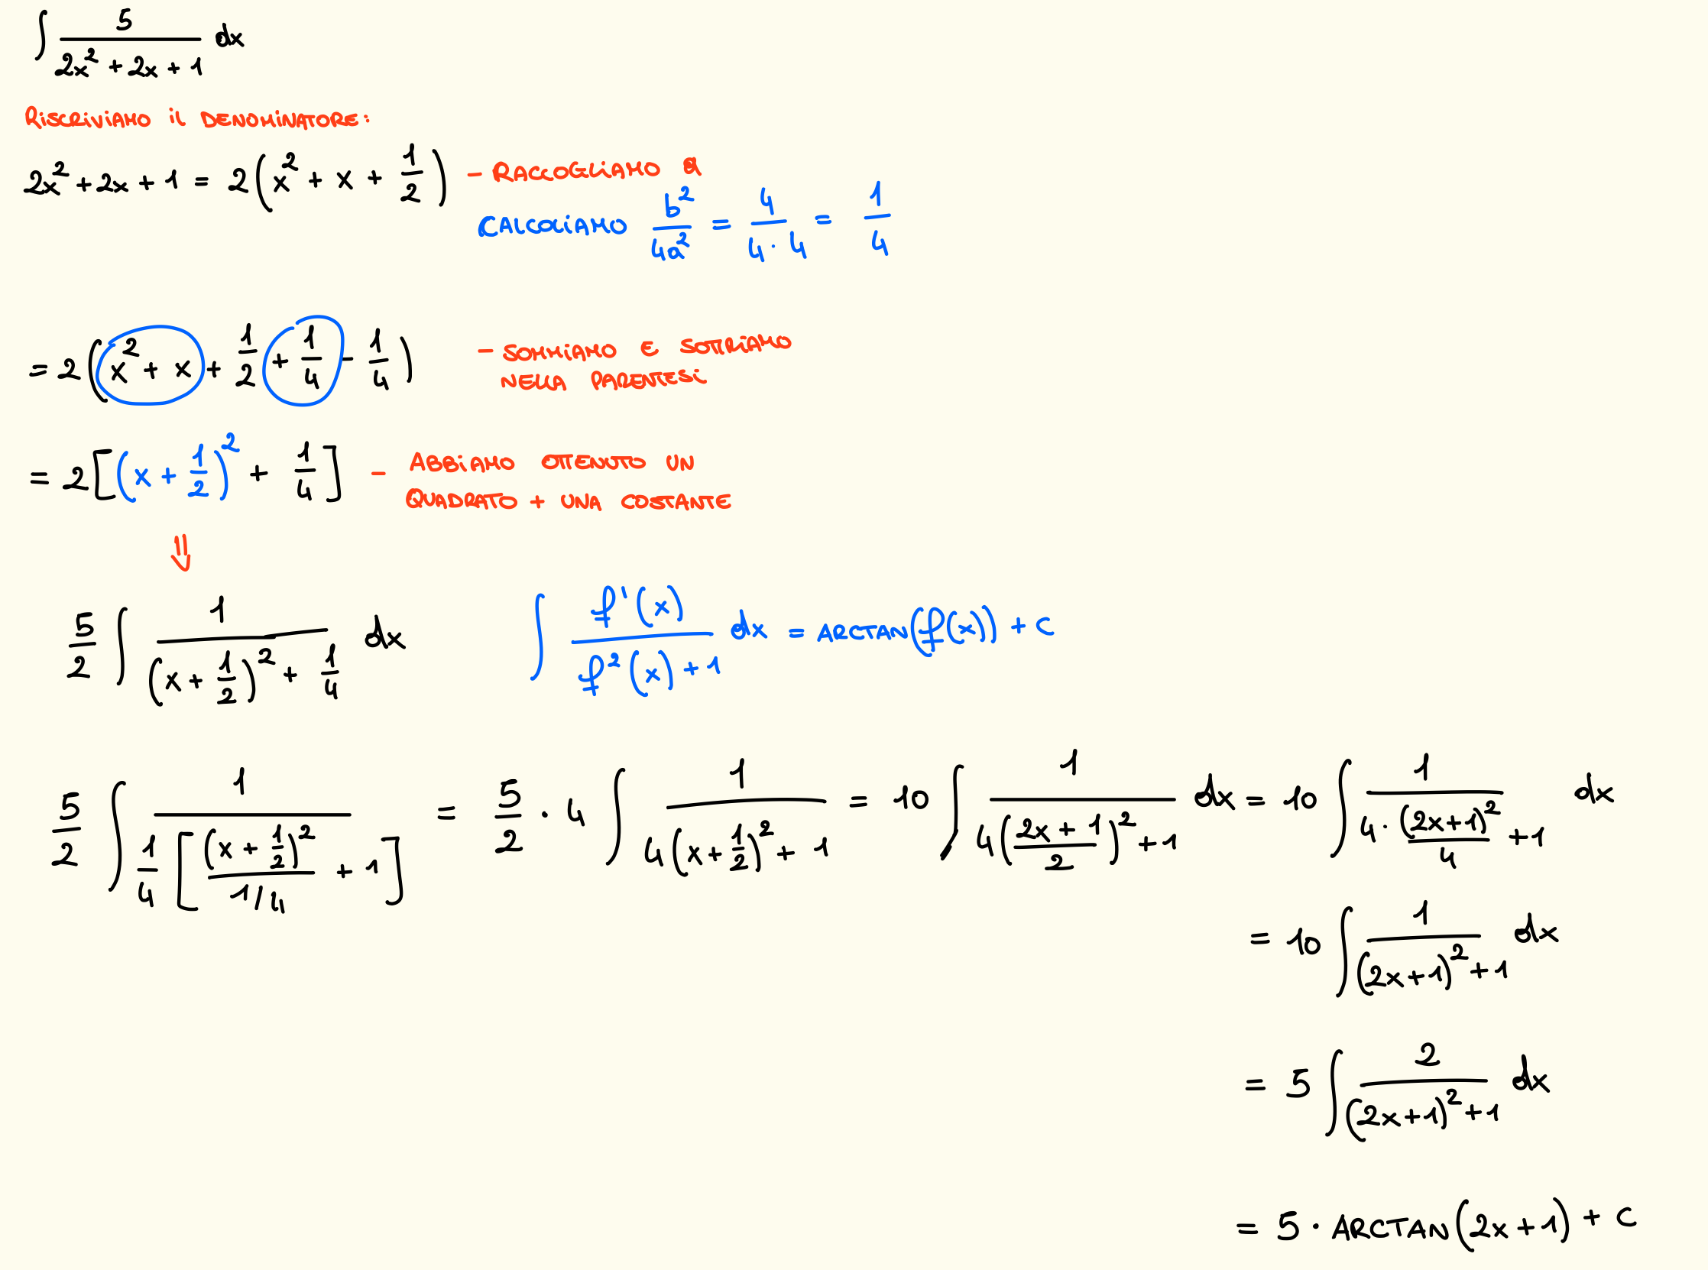 ∫ 5/(2x² + 2x + 1) dx
RISCRIVIAMO IL DENOMINATORE:
2x² + 2x + 1 = 2(x² + x + 1/2) - RACCOGLIAMO a
CALCOLIAMO b²/4a² = 4/(4·4) = 1/4
= 2(x² + x + 1/2 + 1/4 - 1/4) - SOMMIAMO E SOTTRIAMO
NELLA PARENTESI
= 2[(x + 1/2)² + 1/4] - ABBIAMO OTTENUTO UN
QUADRATO + UNA COSTANTE
⇓
5/2 ∫ 1/((x + 1/2)² + 1/4) dx ∫ f'(x)/(f²(x) + 1) dx = ARCTAN(f(x)) + c
5/2 ∫ 1/(1/4 [(x + 1/2)²/(1/4) + 1]) = 5/2 · 4 ∫ 1/(4(x + 1/2)² + 1) = 10 ∫ 1/(4((2x + 1)/2)² + 1) dx = 10 ∫ 1/(4 · (2x+1)²/4 + 1) dx
= 10 ∫ 1/((2x+1)² + 1) dx
= 5 ∫ 2/((2x+1)² + 1) dx
= 5 · ARCTAN(2x+1) + c